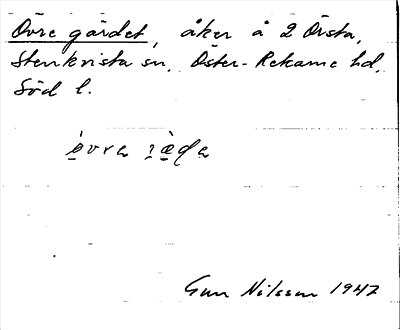 Övre gärdet, åker å 2 Örsta,
Stenkvista sn. Öster-Rekarne hd,
Söd l.
Gun Nilsson 1947